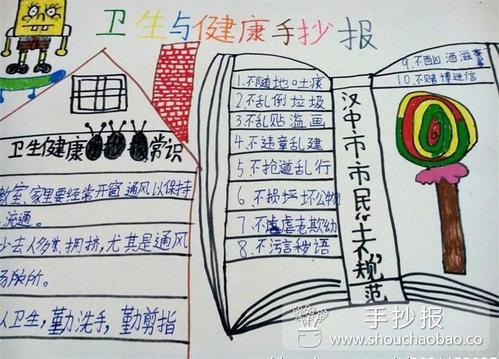 卫生与健康手抄报
卫生健康常识
教室、家里要经常开窗通风以保持
流通。
少去人多、拥挤,尤其是通风
场所。
人卫生,勤洗手,勤剪指
1.不随地吐痰
2.不乱倒垃圾
3.不乱贴滥画
4.不违章乱建
5.不抢道乱行
6.不损坏公物
7.不虐老欺幼
8.不污言秽语
汉中市市民“十不”规范
9.不酗酒滋事
10.不赌博迷信
手抄报
www.shouchaobao.co